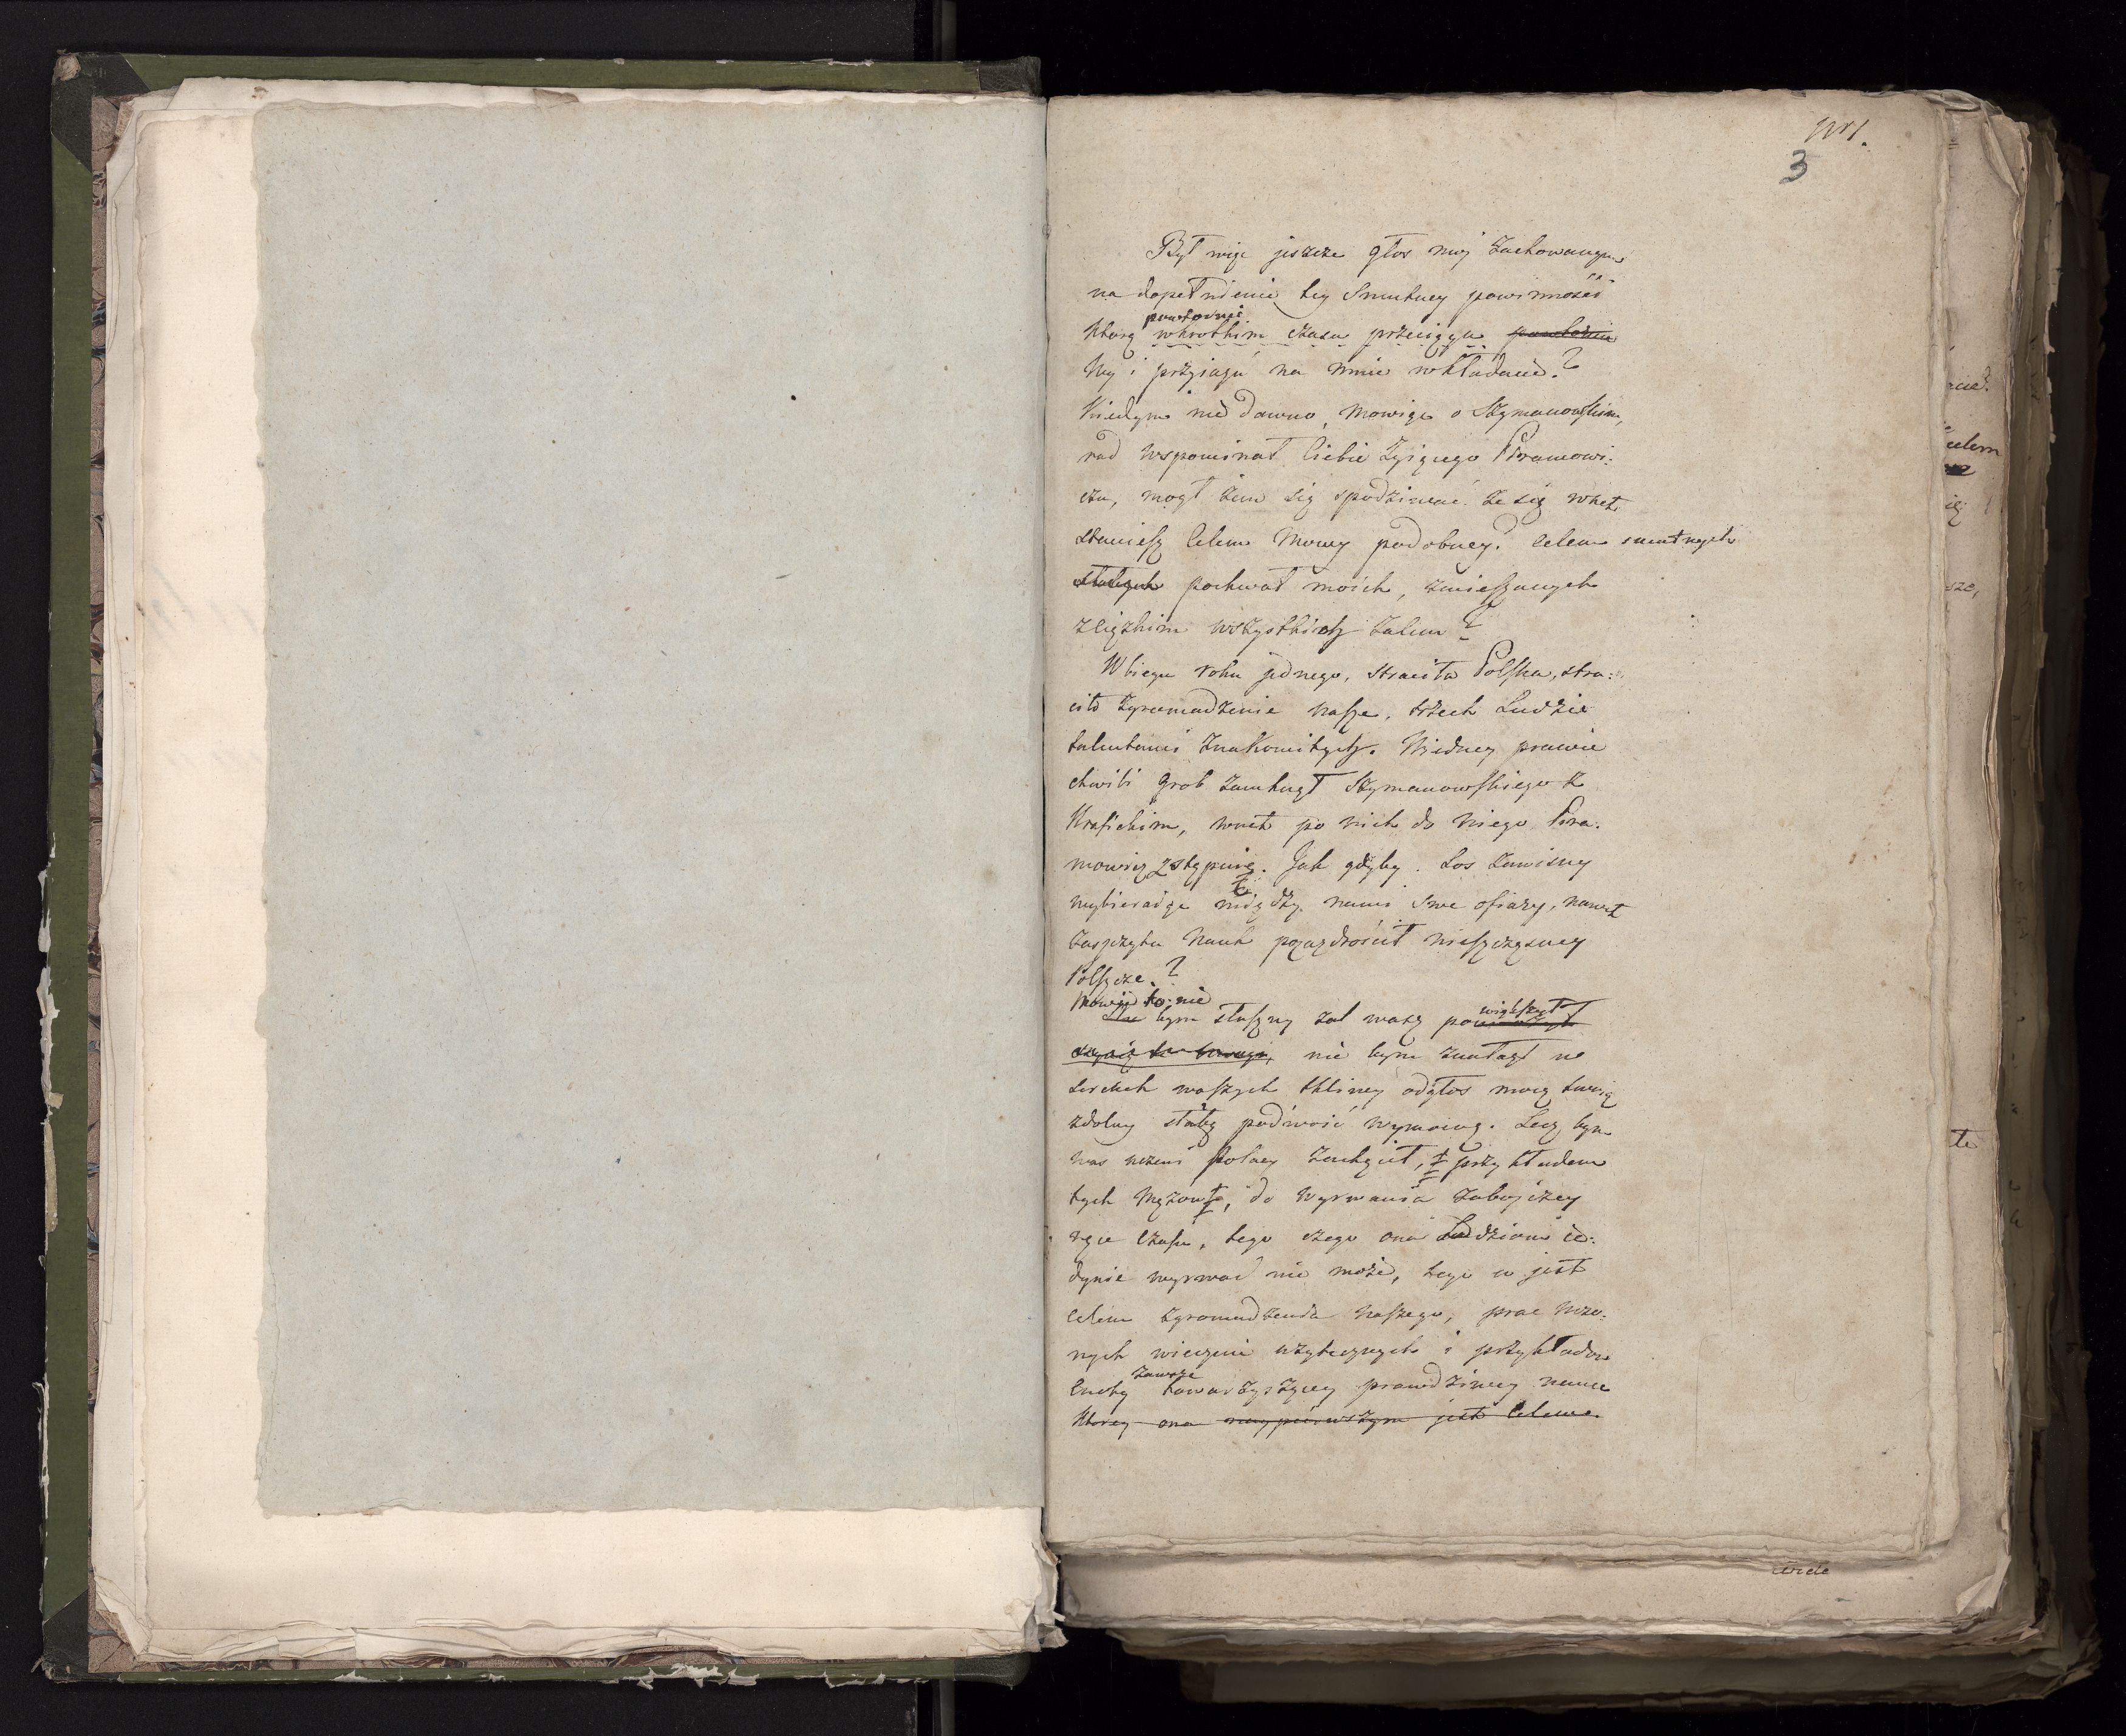 3
Był więc jeszcze głos moj zachowanym
na dopełnienie tey Smutney powinności
powtornie
ktorą wkrotkim czasu przeciągu powtornie
Wy i przyiaźń na mnie wkładacie?
Kiedym nie dawno, mowiąc o Szymanowskim,
rad wspominał Ciebie żyiącego Piramowi:
czu, mogł żem się spodziewać że się wnet
staniesz Celem Mowy podobney? celem smutnych
pochwał moich, zmieszanych
z ciężkim wszystkich żalem?
W biegu roku jednego, straciła Polska, stra:
ciło zgromadzenie nasze, trzech Ludzi
talentami znakomitych. W jedney prawie
chwili grob zamknął Szymanowskiego z
Krasickim, wnet po nich do niego Pira.
mowicz zstępuie. Jak gdyby Los zawisny
wybieraiąc między nami swe ofiary, nawet
zaszczytu Nauk pozazdrościł nieszczęsney
Polszcze?
Mowiąc to: nie
bym słuszny żal wasz powiększył
nie bym znalazł w
sercach waszych tkliwy odgłos mowę
zdolny podnosić wymową. Lecz bym
was uczeni Polacy zachęcił, przykładem
tych Mężow, do wyrwania zaboyczey
ręce Czasu, tego czego ona Ludziom ie:
dynie wyrwać nie może, tego co jest
celem zgromadzenia naszego, prac uczo:
nych wiecznie użytecznych i przykładow
zawsze
Cnoty towarzyszącey prawdziwey nauce
ktorey ona naypierwszym jest celem.